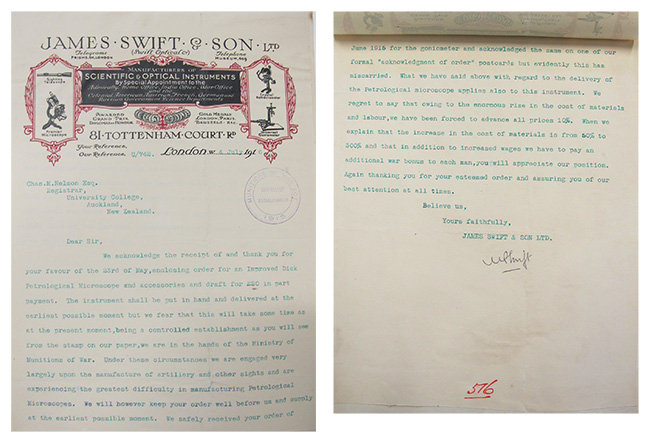 JAMES · SWIFT · & · SON · LTD
Telegrams
(Swift Optical Co)
Telephone
MANUFACTURERS OF
SCIENTIFIC & OPTICAL INSTRUMENTS
By Special Appointment to the
Admiralty, Home Office, India Office, War Office
AWARDED
GRAND PRIX
GOLD MEDALS
LONDON, PARIS,
81·TOTTENHAM·COURT·Rd
Your Reference,
Our Reference,
London. W. 4 July 191
Chas.M.Nelson Esq.
Registrar,
University College,
Auckland,
New Zealand.
Dear Sir,
We acknowledge the receipt of and thank you for
your favour of the 23rd of May,enclosing order for an Improved Dick
Petrological Microscope and accessories and draft for in part
payment. The instrument shall be put in hand and delivered at the
earliest possible moment but we fear that this will take some time as
at the present moment,being a controlled establishment as you will see
from the stamp on our paper,we are in the hands of the Ministry of
Munitions of War. Under these circumstances we are engaged very
largely upon the manufacture of artillery and other sights and are
experiencing the greatest difficulty in manufacturing Petrological
Microscopes. We will however keep your order well before us and supply
at the earliest possible moment. We safely received your order of
June 1915 for the goniometer and acknowledged the same on one of our
formal "acknowledgment of order" postcards but evidently this has
miscarried. What we have said above with regard to the delivery of
the Petrological microscope applies also to this instrument. We
regret to say that owing to the enormous rise in the cost of materials
and labour,we have been forced to advance all prices 10%. When we
explain that the increase in the cost of materials is from 50% to
500% and that in addition to increased wages we have to pay an
additional war bonus to each man,you will appreciate our position.
Again thanking you for your esteemed order and assuring you of our
best attention at all times.
Believe us,
Yours faithfully,
JAMES SWIFT & SON LTD.
576